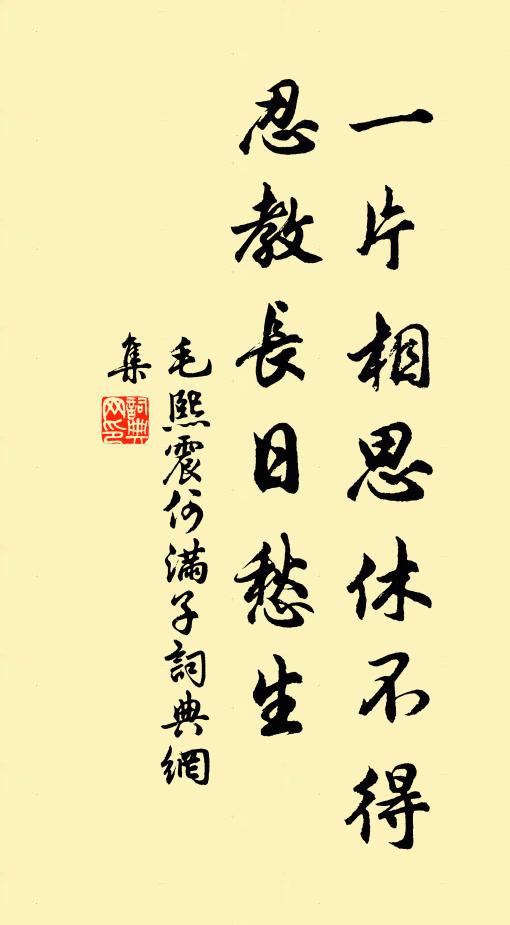 一片相思休不得
忍教長日愁生
毛熙震何滿子詞典網
集
詞典
网印